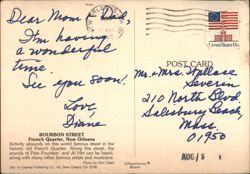 Dear Mom & Dad,
I'm having
a wonderful
time.
See you soon!
Love
Diane
BOURBON STREET
French Quarter, New Orleans
Activity abounds on this world famous street in the
historic old French Quarter. Along this street, the
sounds of Pete Fountain and Al Hirt can be heard,
along with many other famous artists and musicians.
POST CARD
Mr. & Mrs. Wallace
Severin
210 North Blvd
Salisbury Beach,
Mass.
01950
United States 13c
AUG / 5